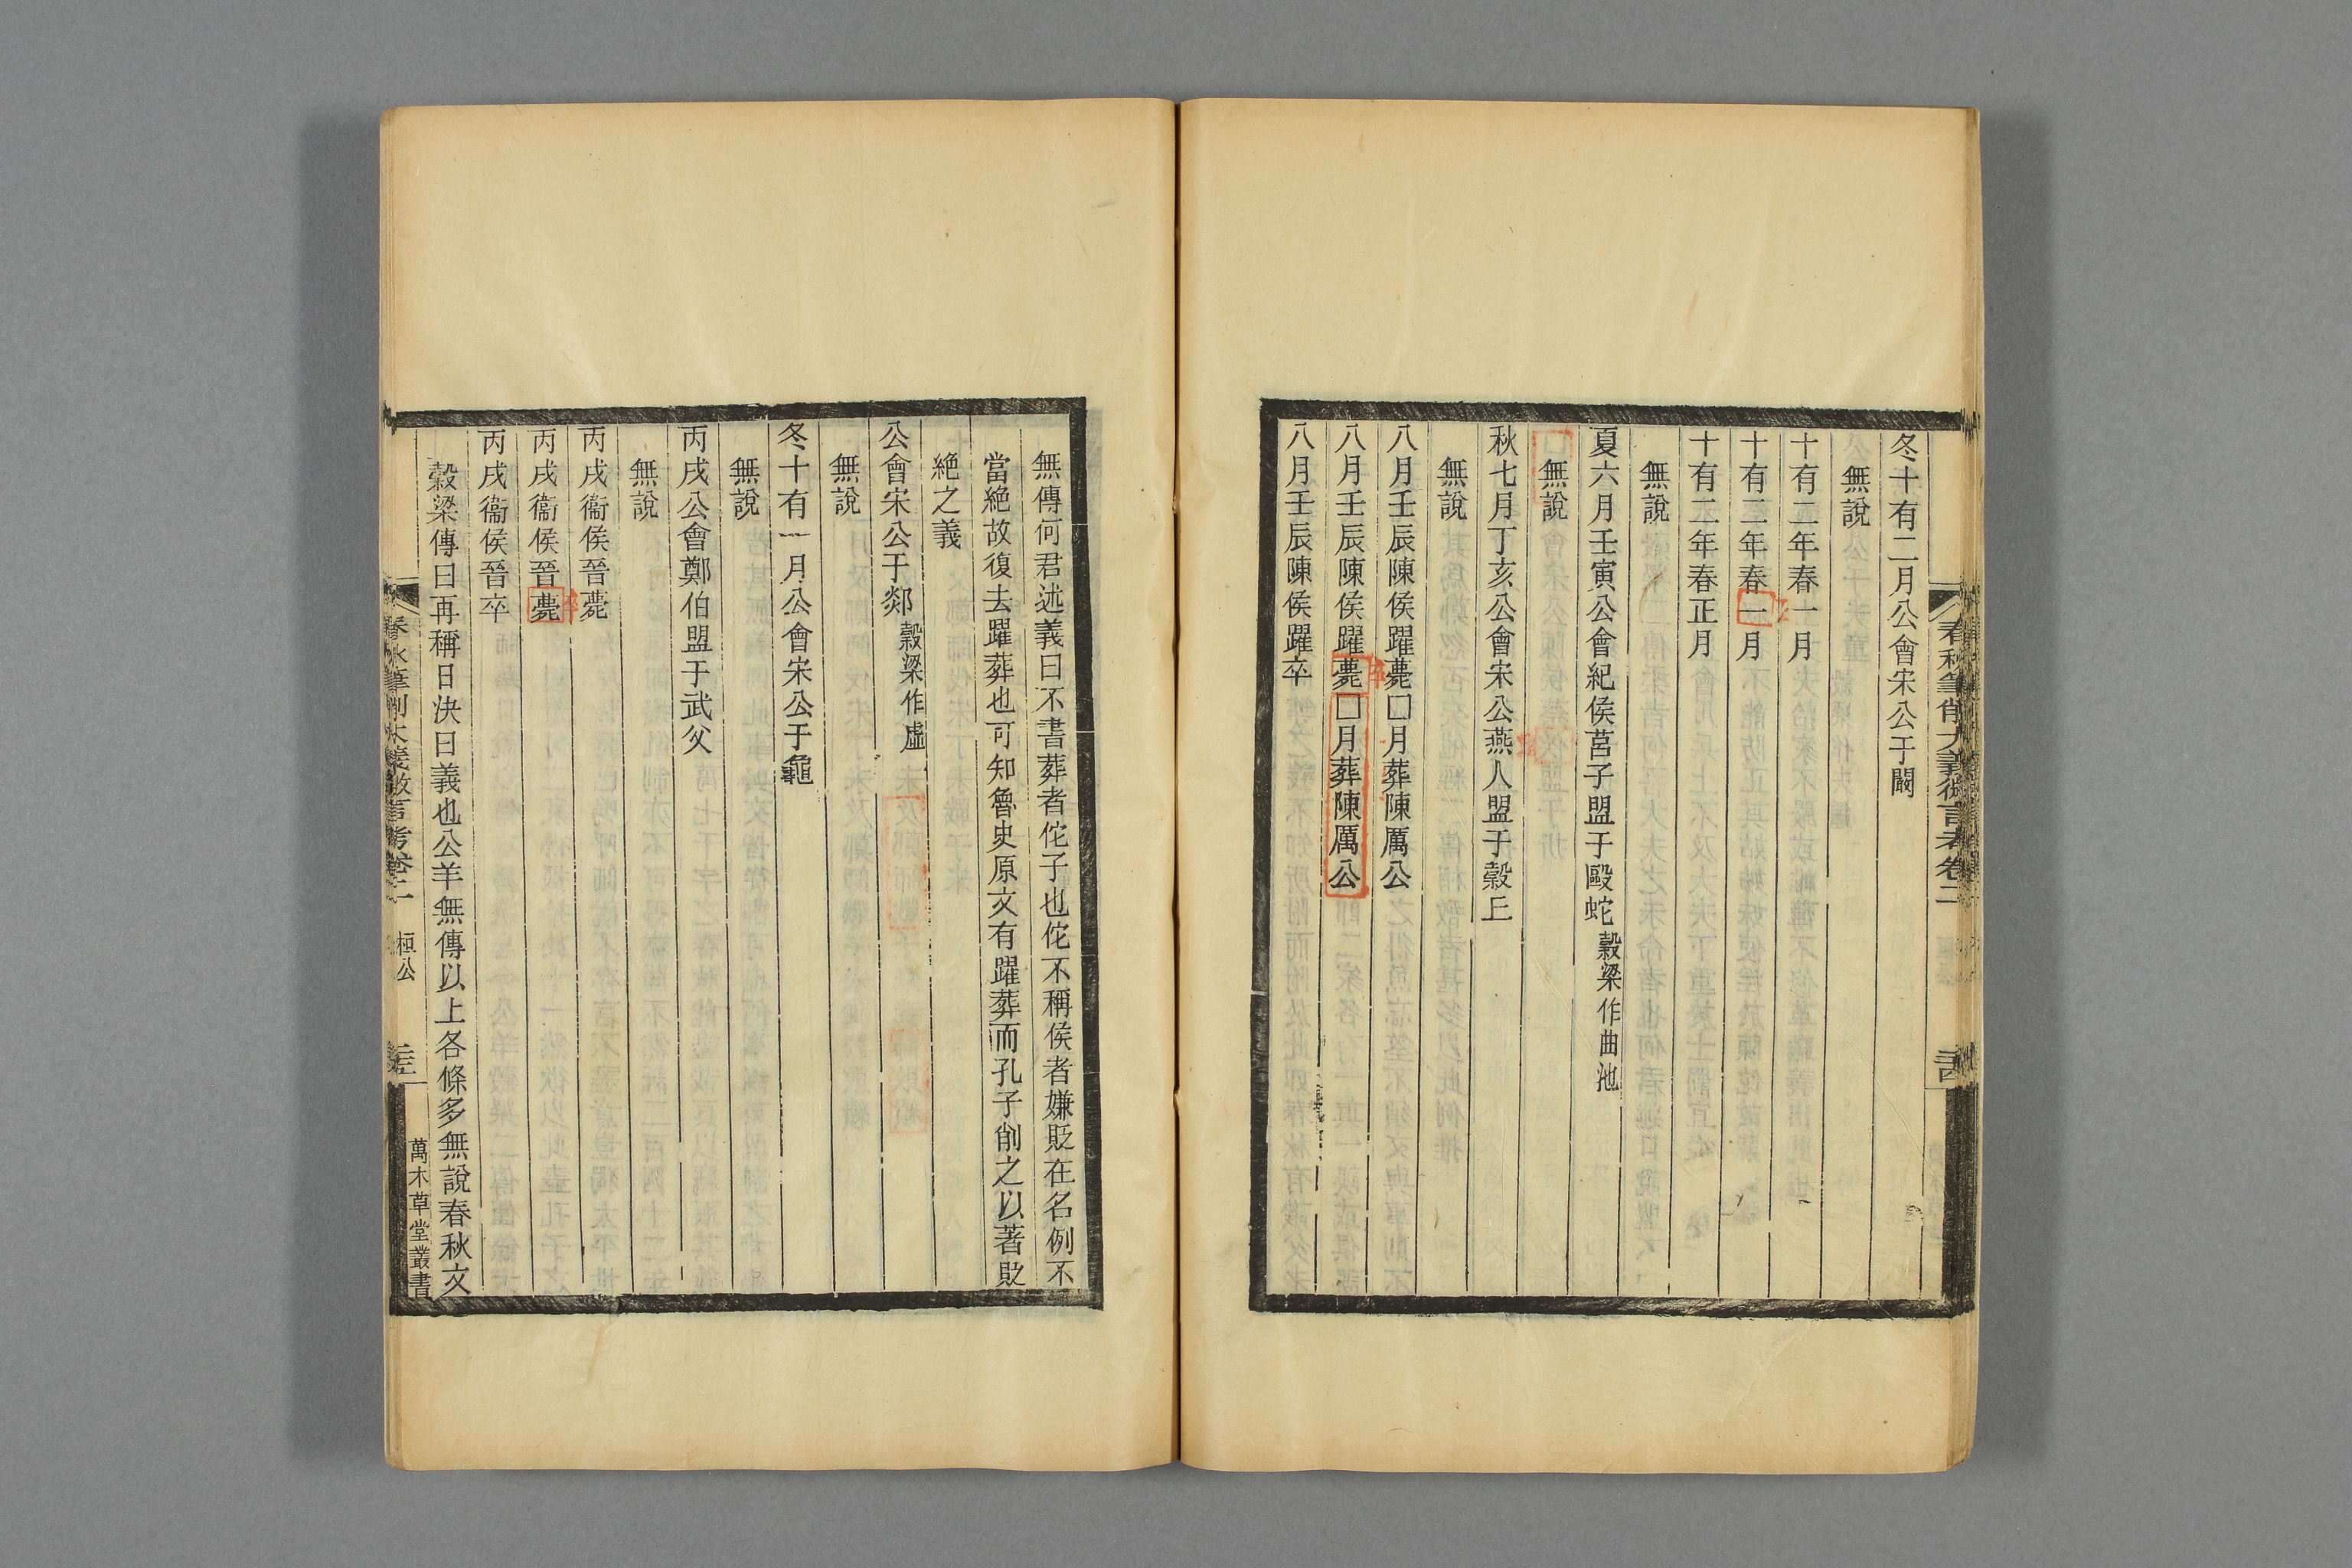 冬十有二月公會宋公于闞
無說
十有二年春一月
十有二年春一月
十有二年春正月
無說
夏六月壬寅公會紀侯莒子盟于毆蛇 穀梁作曲池
無說
秋七月丁亥公會宋公燕人盟于穀丘
無說
八月壬辰陳侯躍薨□月葬陳厲公
八月壬辰陳侯躍薨□月葬陳厲公
八月壬辰陳侯躍卒
無傳何君述義曰不書葬者佗子也佗不稱侯者嫌貶在名例不
當絕故復去躍葬也可知魯史原文有躍葬而孔子削之以著貶
絕之義
公會宋公于郯 穀梁作虛
無說
冬十有一月公會宋公于龜
無說
丙戌公會鄭伯盟于武父
無說
丙戌衞侯晉薨
丙戌衞侯晉薨
丙戌衞侯晉卒
穀梁傳曰再稱日決日義也公羊無傳以上各條多無說春秋文
春秋筆削大義微言考卷二 桓公
萬木草堂叢書